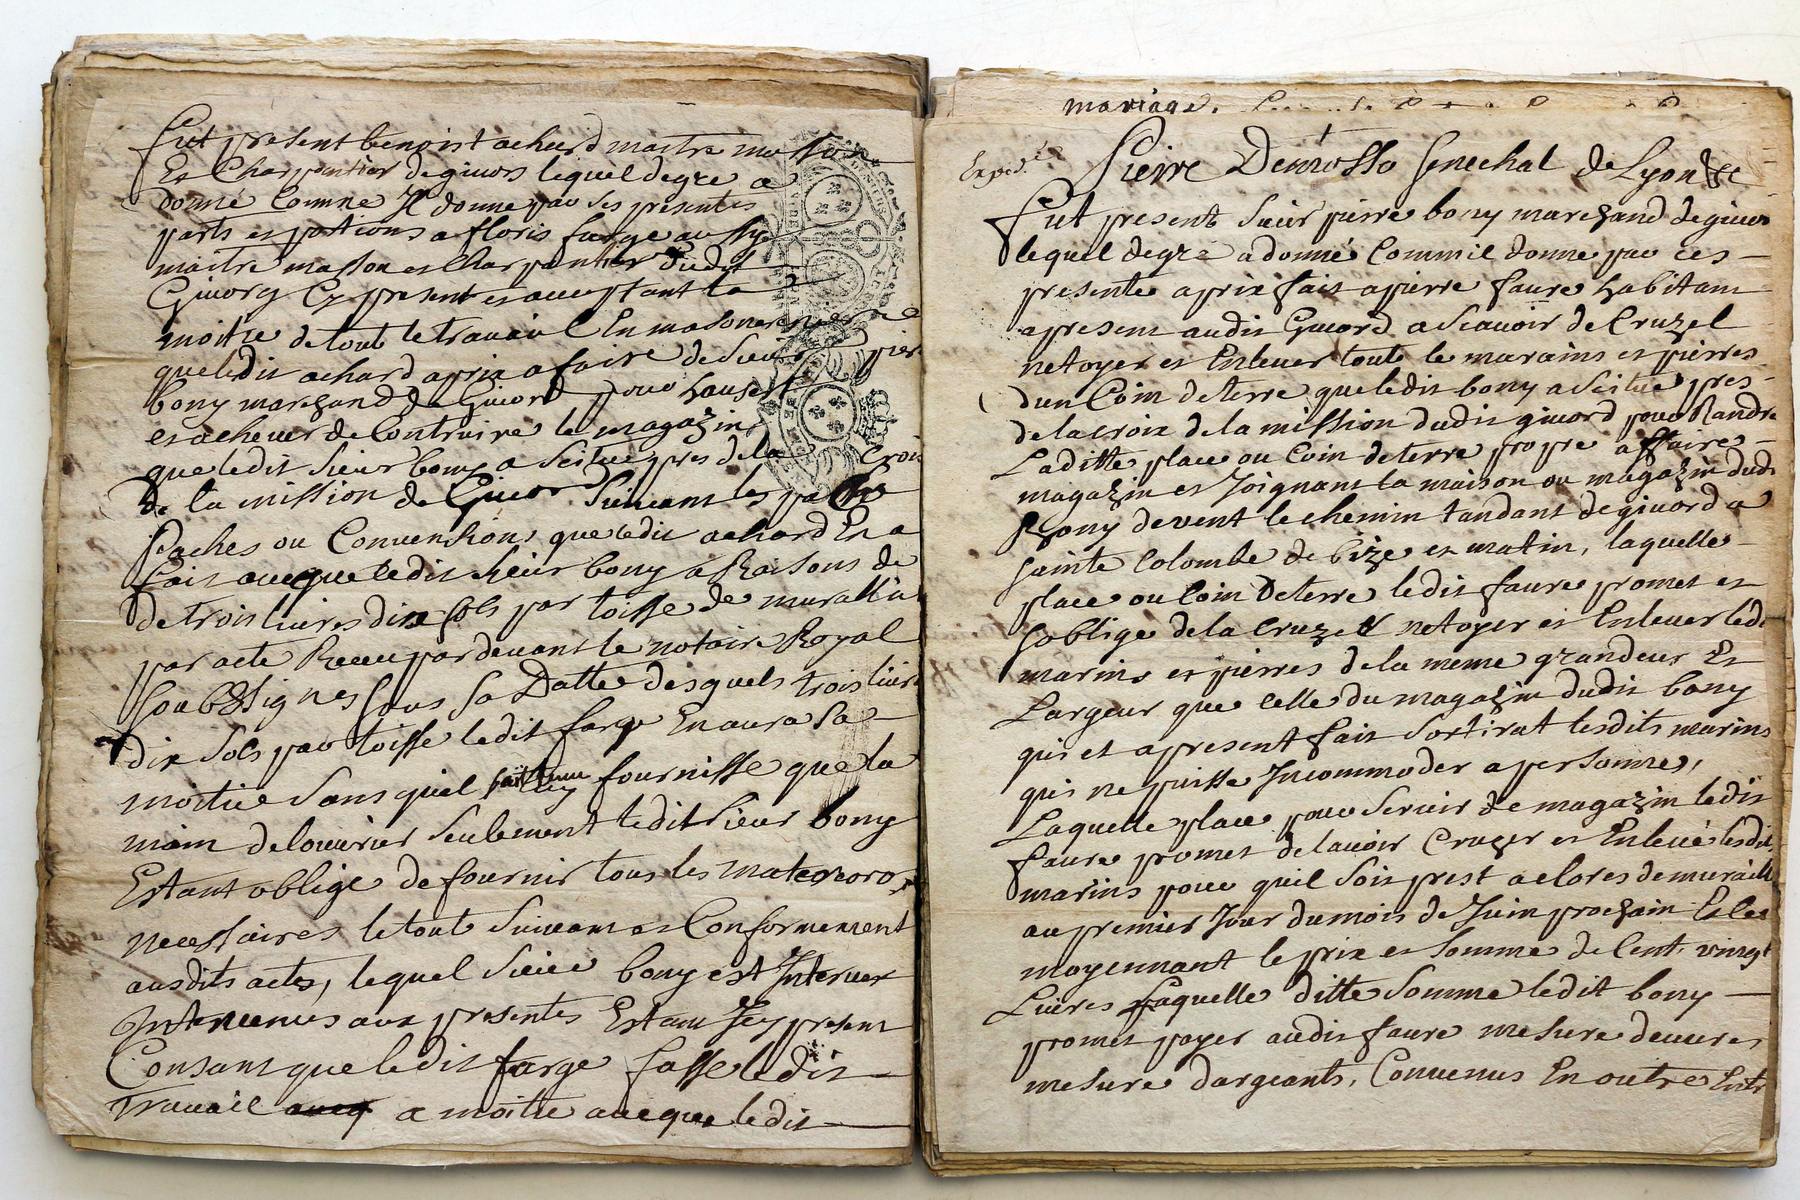 fut present benoist achard maitre masson
Et Charpantier de givors lequel de gre a
donné Comme Il donne par ses presentes
parts et portions a floris farge aussy
maitre masson et Charpantier dudit
Givors Cy present et acceptant la
moitie de tout le travail En masonnerie
que ledit achard a prix a faire de Sieur pier
bony marchand de Givord pour hausser
et achever de Contruire le magazin
que ledit sieur bony a scitue pres de la Croix
de la mission de Givord Suivant les paches
Paches ou Conventions que ledit achard En a
fait avecque ledit sieur bony a Raisons de
de trois livres dix sols par toisse de muraille
par acte Receu par devant le notaire Royal
soubssignes sous sa Datte desquels trois livres
dix sols par toisse ledit farge En aura la
moitie sans quil fournisse que la
main de louvrier seulement ledit sieur bony
Estant oblige de fournir tous les
necessaires le tout Suivant et Conformement
ausdits actes, lequel sieur bony est Interver
Intervenus aux presentes Estant Icy present
Consant que ledit farge fasse ledit
Travail a moitie avecque ledit
mariage.
Exped.
Pierre Senechal de Lyon
fut present Sieur pierre bony marchand de givors
lequel de gre a donné Comme il donne par ces
presente a prix fait a pierre faure habitant
a present audit Givord a Scavoir de Cruzel
netoyer et Enlever toute le marains et pierres
dun Coin de terre que ledit bony a Scitue pres
de la croix de la mission dudit givord pour Randre
Laditte place ou Coin de terre propre a ffaire
magazin et Joignant la maison ou magazin dudit
Bony devent le chemin tandant de givord a
sainte Colombe de bize et matin, laquelle
place ou Coin de terre ledit faure promet et
soblige de la Cruzer netoyer et Enlever ledit
marins et pierres de la meme grandeur Et
Largeur que celle du magazin dudit bony
qui et a present fait Sortirat lesdits marins
qui ne puisse Incommoder a personne,
Laquelle place pour Servir de magazin ledit
faure promet de lavoir Cruzer et Enlevé lesdits
marins pour quil Soit prest a clores de muraille
au premier Jour du mois de Juin prochain Et ce
moyennant le prix et Somme de Cent vingt
Livres Laquelle ditte Somme ledit bony
promet payer audit faure mesure deuvres
mesure dargeants, Convenus En outre Entr